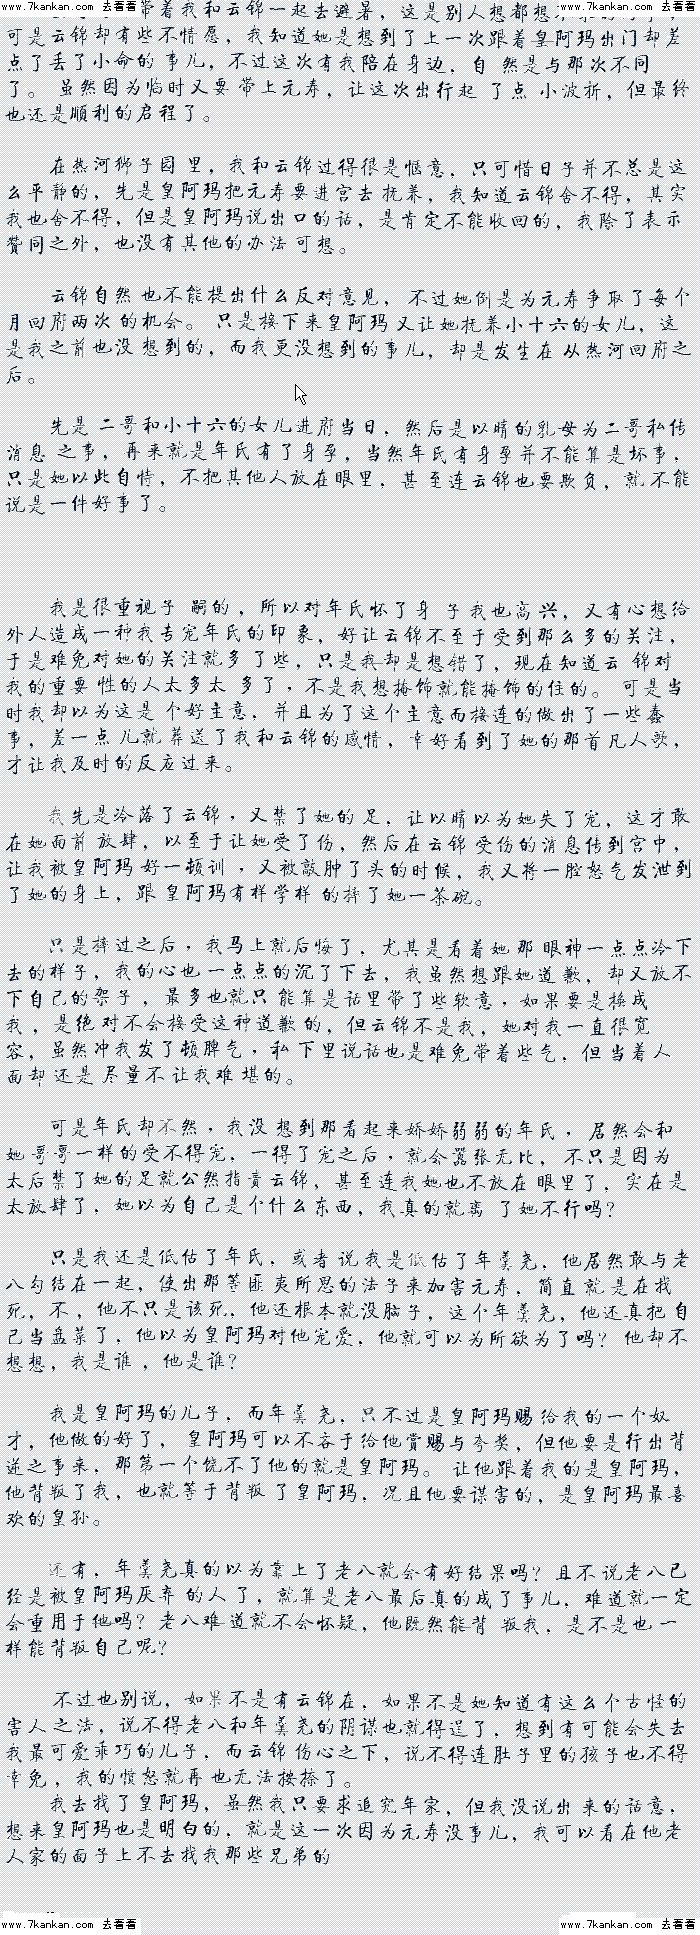 www.7kankan.com 去看看 www.7kankan.com 去看看
带着我和云锦一起去避暑，这是别人想都想
可是云锦却有些不情愿，我知道她是想到了上一次跟着皇阿玛出门却差
点了丢了小命的 事儿，不过这次有我陪在身边，自 然是与那次不同
了。 虽然因为临时又要 带上元寿，让这次出行起 了点 小波折，但最终
也还是顺利的启程了。
在热河狮子园 里，我和云锦过得很是惬意，只可惜日子并不总是这
么平静的，先是皇阿玛把元寿要进宫去 抚养，我知道云锦舍不得，其实
我也舍不得，但是皇阿玛说出口的话，是肯定不能收回的，我除了表示
赞同之外，也没有其他的办法 可想。
云锦自然 也不能提出什么反对意见， 不过她倒是为元寿争取了每个
月回府两次 的机会。 只是接下来皇阿玛 又让她抚养小十六的女儿，这
是我之前也没 想到的，而我更没想到的事儿，却是发生在 从热河回府之
后。
先是 二哥和小十六的女儿进府当日，然后是以晴的乳母为二哥私传
消息 之事，再来就是年氏有了身孕，当然年氏有身孕并不能算是坏事，
只是她以此自恃，不把其他人放在眼里，甚至连云锦也要欺负，就不能
说是一件好事了。
我是很重视子 嗣的，所以对年氏怀了身 子我也高兴，又有心想给
外人造成一种我专宠年氏的印 象，好让云锦不至于受到那么多的关注，
于是难免对她的关注就多 了些，只是我却是想错了，现在知道云 锦对
我的重要 性的人太多太 多了，不是我想掩饰就能掩饰的住的。 可是当
时我却以为这是 个好主意，并且为了这个主意而接连的做出了一些蠢
事，差一点 儿就 葬送了我和云锦的感情，幸好看到了她的那首凡人歌，
才让我及时的反应过来。
我先是冷落了云锦，又禁了她的 足，让以晴以为她失了宠，这才敢
在她面前 放肆，以至于让她受了伤，然后在云锦 受伤的消息传到宫中，
让我被皇阿玛 好一顿训，又被敲肿了头的时候，我又将一腔怒气发泄到
了她的身上，跟 皇阿玛有样学样 的摔了她一茶碗。
只是摔过之后，我马上就后悔了，尤其是看着她 那 眼神一点点冷下
去的样子，我的心也 一点点的沉了下去，我虽然想跟她道 歉，却又放不
下自己的架子，最多也就只 能算是话里带了些软意，如果要是换成
我，是绝对不会接受这种道歉 的，但云锦不是我，她对我一直很宽
容，虽然冲我发了顿脾气，私下里说话也是难免带着些气，但当着人
面却 还是 尽量不让我难 堪的。
可是年氏却不然，我没 想到那看起来娇娇弱弱的年氏，居然会和
她 哥哥一样的受不得宠，一得了宠之后，就会嚣张无比， 不只是因为
太后禁了她的足就公然指责云锦，甚至连我她也不放在 眼里了，实在是
太放肆了，她以为自己是个什么东西，我真的就离 了她不行吗？
只是我还是低估了年氏，或者说我是低估了年羹尧，他居然敢与老
八勾结在一起，使出那等匪夷所思的法子来加害元寿，简直就是在找
死，不，他不只是该死，他还根本就没脑子，这个年羹尧，他还真把自
己当盘菜了，他以为皇阿玛对他宠爱，他就可以为所欲为了吗？他却不
想想，我是谁，他是谁？
我是皇阿玛的儿子，而年羹尧，只不过是皇阿玛赐 给我的一个奴
才，他做的好了， 皇阿玛可以不吝于给他赏赐与夸奖，但他要是行出背
逆之事来，那第一个饶不了他的就是皇阿玛。 让他跟着我的是皇阿玛，
他背叛了我，也就等于背叛了皇阿玛，况且他要谋害的，是皇阿玛最喜
欢的皇孙。
还有，年羹尧真的以为靠上了老八就会有好结果吗？且不说老八已
经是被皇阿玛厌弃 的人了，就算是老八最后真的成了事儿，难道就一定
会重用于他吗？老八难道就不会怀疑，他既然能背 叛我，是不是也一
样能背叛自己呢？
不过也别说，如果不是有云锦在，如果不是她知道有这么个古怪的
害人之法，说不得老八和年羹尧的阴谋也就得逞了，想到有可能会失去
我最可爱乖巧的儿子，而云锦伤心之下，说不得连肚子里的孩子也不得
幸免，我的愤怒就再也无法按捺了。
我去找了皇阿玛，虽然我只要求追究年家，但我没说出 来的话意，
想来皇阿玛也是明白的，就是这一次因为元寿没事儿，我可以看在他老
人家的面子上不去找我那些兄弟的
www.7kankan.com 去看看 www.7kankan.com 去看看